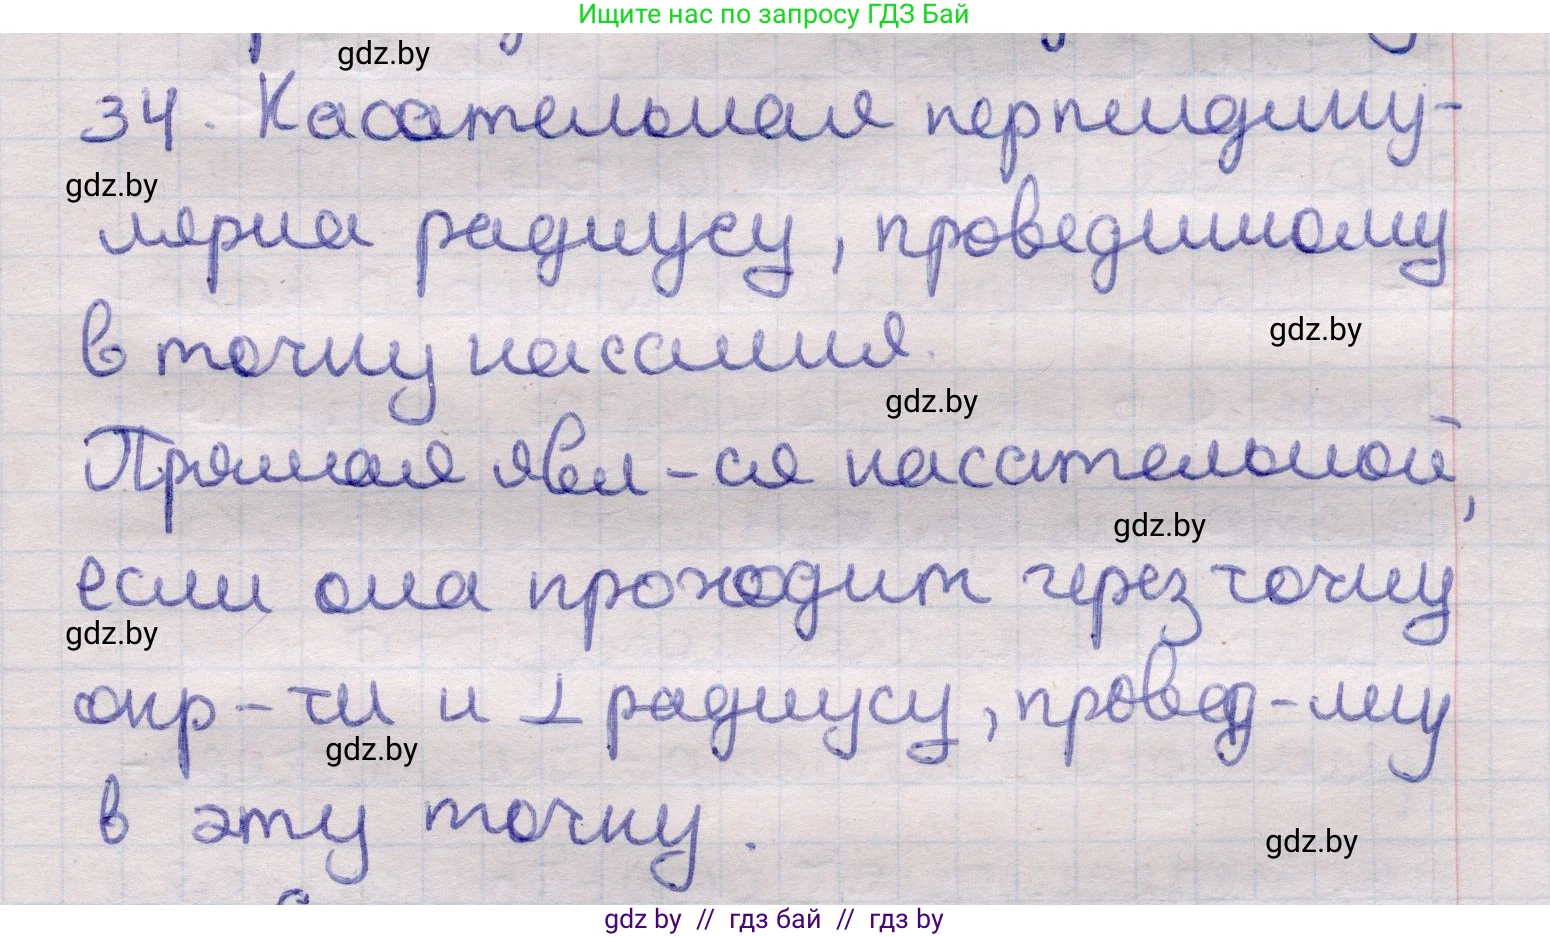 Ищите нас по запросу ГДЗ Бай
gdz.by
34. Касательная перпендику-
gdz.by
лярна радиусу, проведенному
в точку касания.
gdz.by
gdz.by
Прямая явл-ся касательной,
gdz.by
если она проходит через точку
gdz.by
окр-ти и ⊥ радиусу, провед-му
gdz.by
в эту точку.
gdz.by
gdz by // гдз бай // гдз by